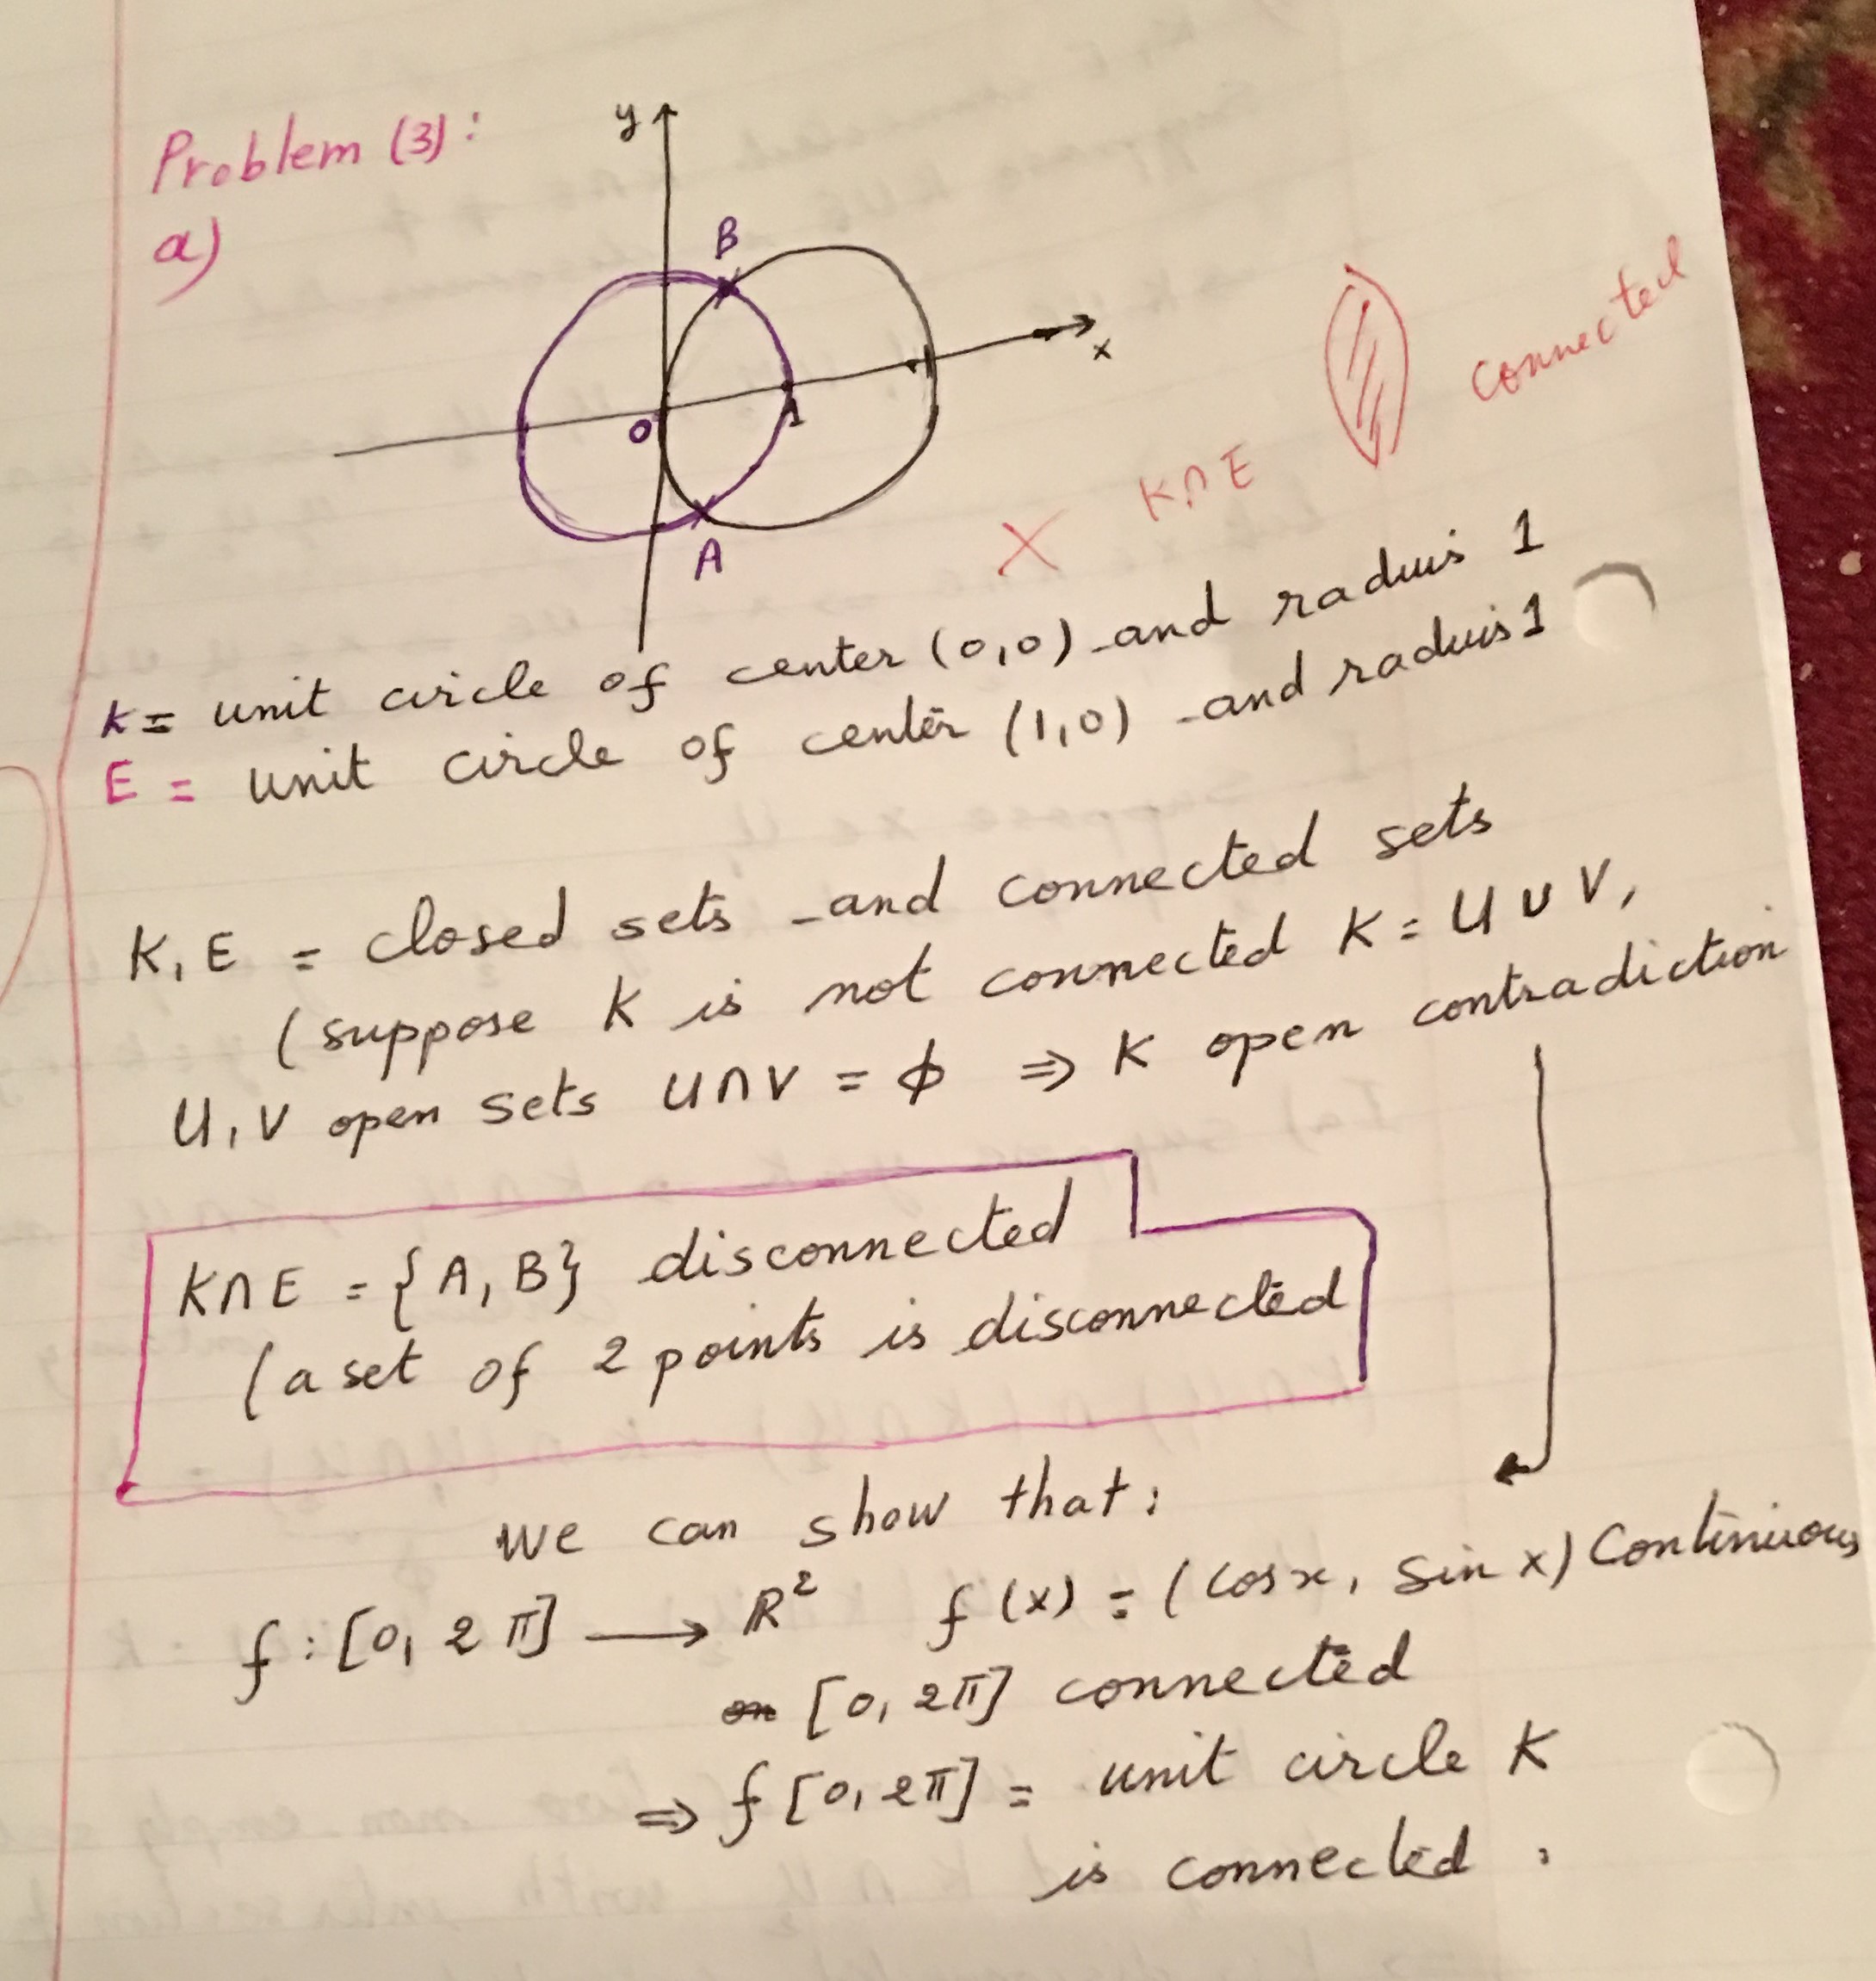 Problem (3):
a)
y
B
x
0
1
A
connected
K∩E
X
K = unit circle of center (0,0) and radius 1
E = unit circle of center (1,0) and raduis 1
K, E = closed sets and connected sets
(suppose K is not connected K = U ∪ V,
U, V open sets U∩V = ϕ ⇒ K open contradiction
K∩E = {A, B} disconnected
(a set of 2 points is disconnected
we can show that:
f : [0, 2π] ⟶ ℝ² f(x) = (cosx, sin x) Continuous
on [0, 2π] connected
⇒ f[0, 2π] = unit circle K
is connected.